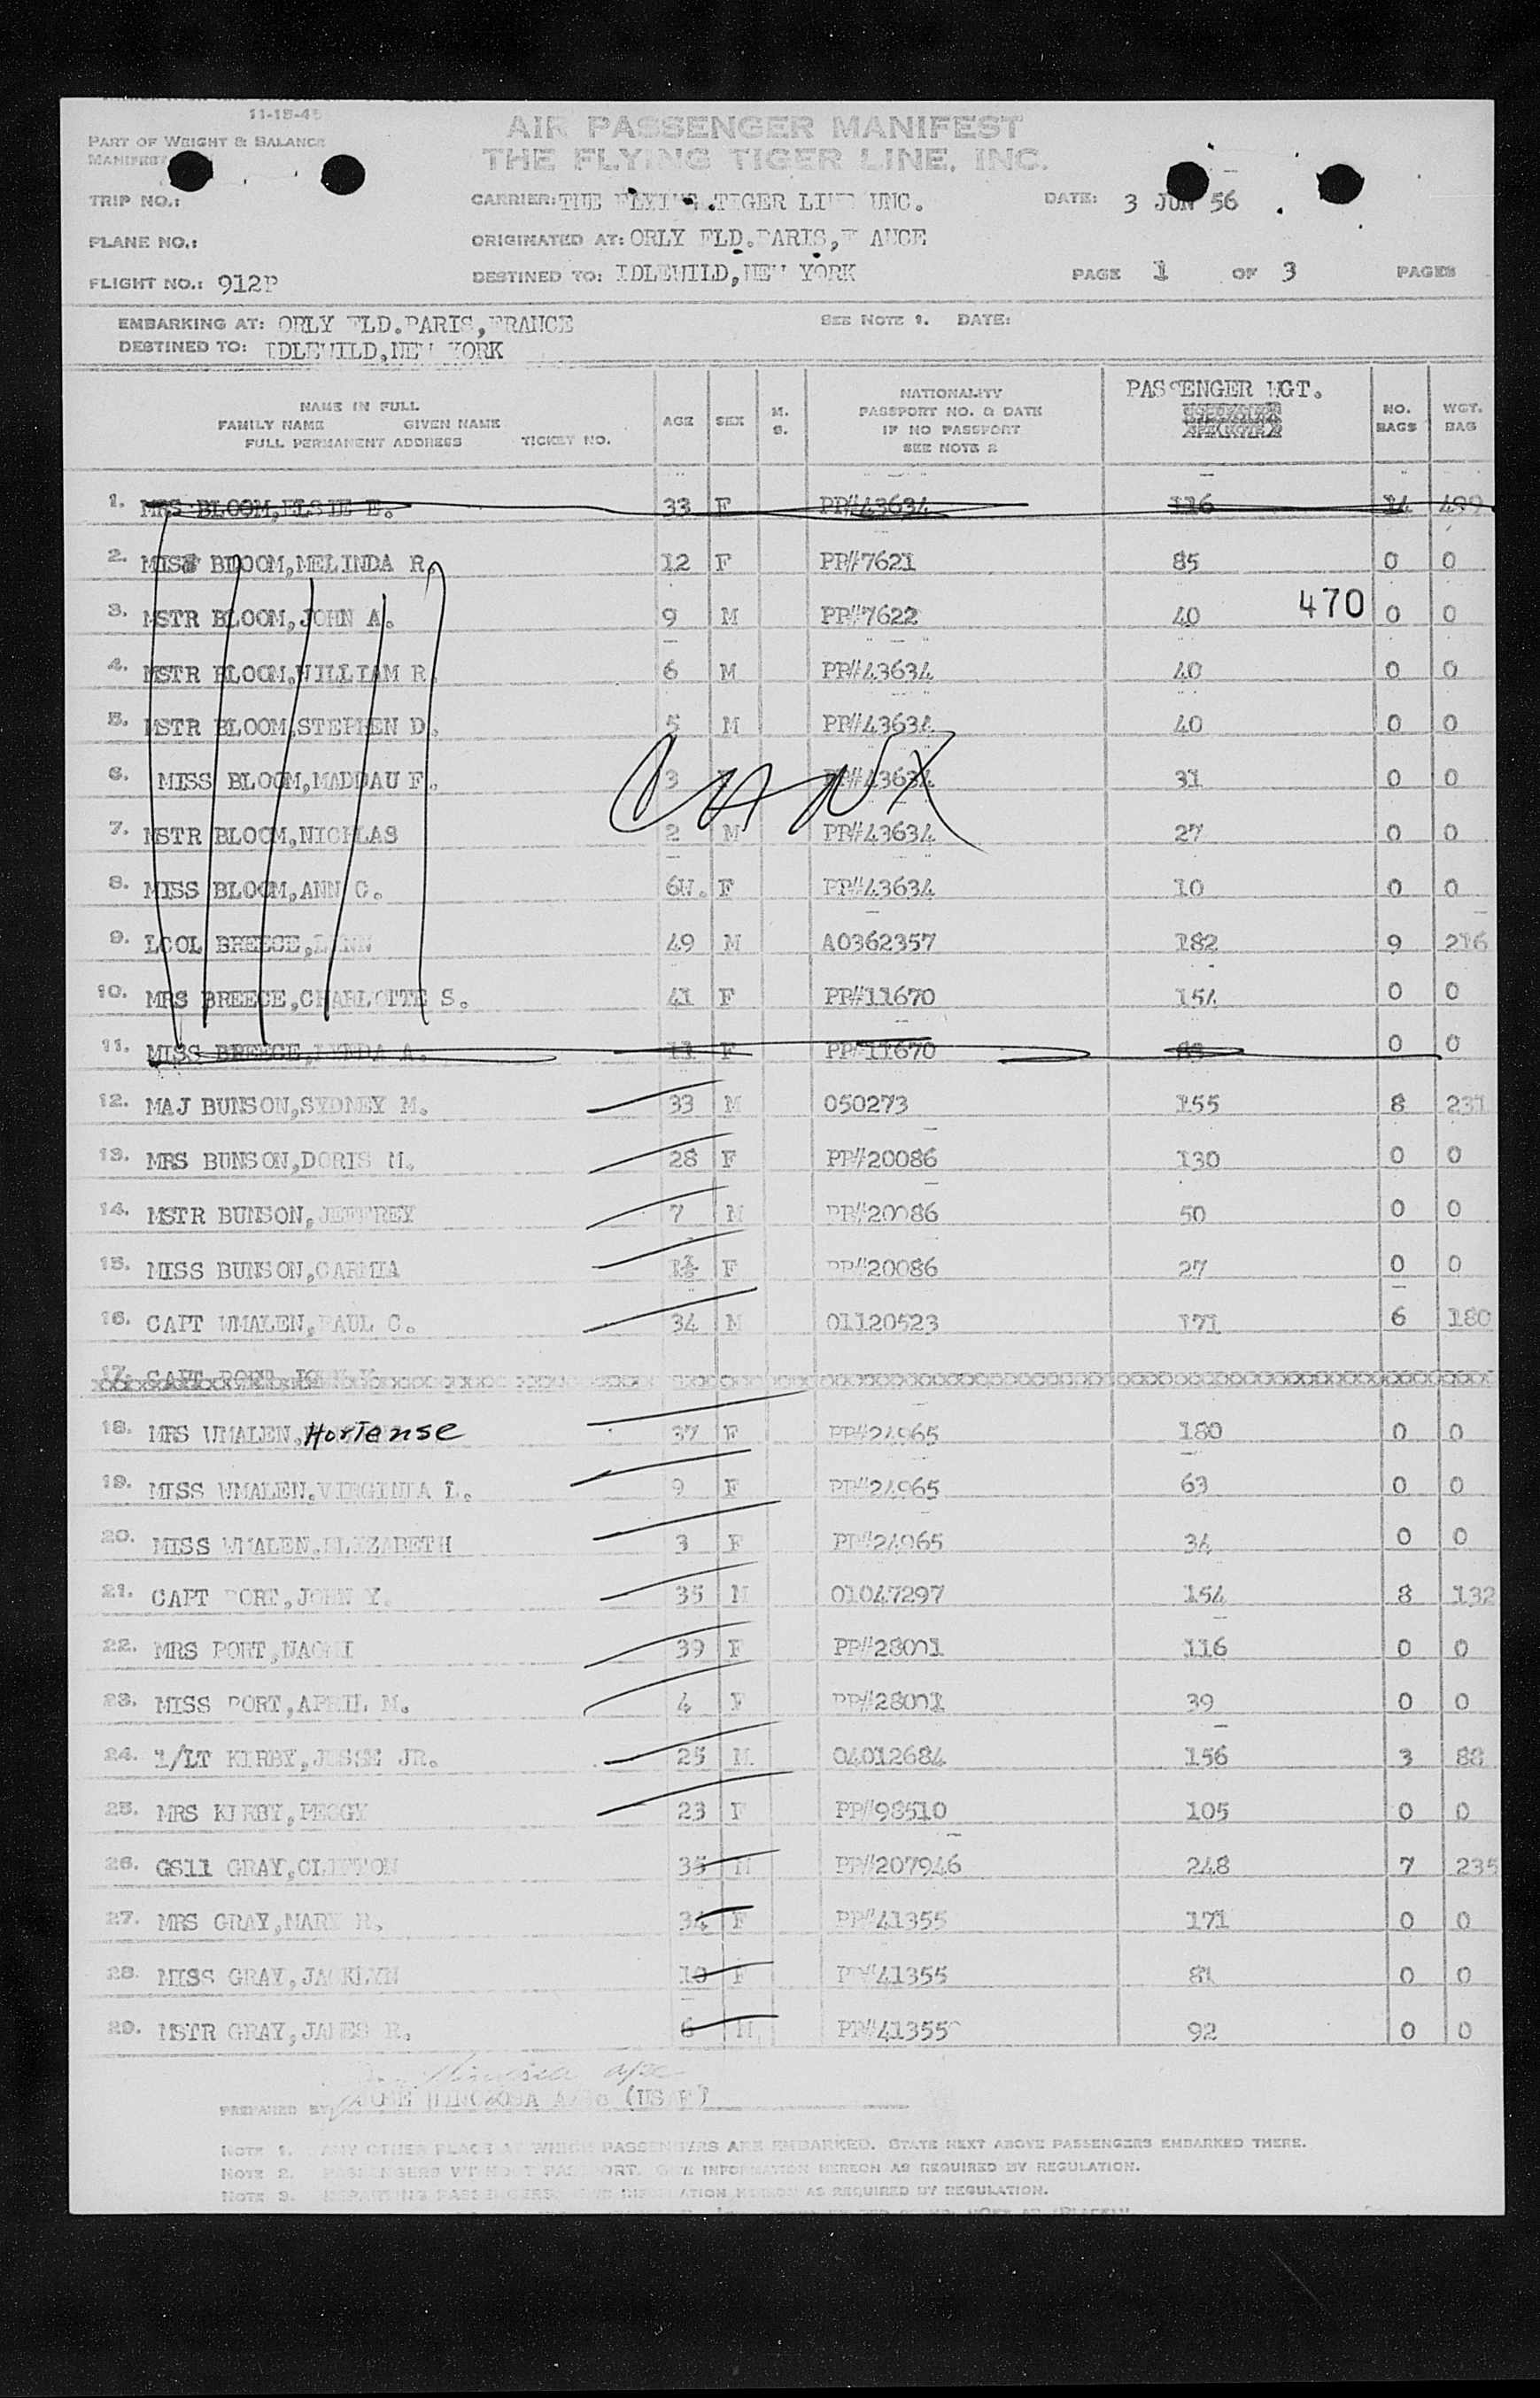 11-15-45
PART OF WEIGHT & BALANCE
MANIFEST
AIR PASSENGER MANIFEST
THE FLYING TIGER LINE, INC.
TRIP NO.: CARRIER: THE FLYING TIGER LINE INC. DATE: 3 JUN 56
PLANE NO.: ORIGINATED AT: ORLY FLD.PARIS,FRANCE
FLIGHT NO.: 912P DESTINED TO: IDLEWILD,NEW YORK PAGE 1 OF 3 PAGES
EMBARKING AT: ORLY FLD.PARIS,FRANCE SEE NOTE 1. DATE:
DESTINED TO: IDLEWILD,NEW YORK
NAME IN FULL
FAMILY NAME GIVEN NAME
FULL PERMANENT ADDRESS TICKET NO. AGE SEX M. S. NATIONALITY PASSPORT NO. & DATE IF NO PASSPORT SEE NOTE 2 PASSENGER WGT. NO. BAGS WGT. BAG
1. MRS BLOOM,ELSIE E. 33 F PP#43634 116 14 499
2. MISS BLOOM,MELINDA R. 12 F PP#7621 85 0 0
470
3. MSTR BLOOM,JOHN A. 9 M PP#7622 40 0 0
4. MSTR BLOOM,WILLIAM R. 6 M PP#43634 40 0 0
5. MSTR BLOOM,STEPHEN D. 5 M PP#43634 40 0 0
CANX
6. MISS BLOOM,MADDAU F. 3 F PP#43634 31 0 0
7. MSTR BLOOM,NICHLAS 2 M PP#43634 27 0 0
8. MISS BLOOM,ANN C. 6W. F PP#43634 10 0 0
9. LCOL BREECE,LYNN 49 M AO362357 182 9 216
10. MRS BREECE,CHARLOTTE S. 41 F PP#11670 154 0 0
11. MISS BREECE,LYNDA A. 11 F PP#11670 0 0
12. MAJ BUNSON,SYDNEY M. 33 M 050273 155 8 231
13. MRS BUNSON,DORIS M. 28 F PP#20086 130 0 0
14. MSTR BUNSON,JEFFREY 7 M PP#20086 50 0 0
15. MISS BUNSON,CARMIA 1½ F PP#20086 27 0 0
16. CAPT WMALEN,PAUL C. 34 M 01120523 171 6 180
17. CAPT PORT, JOHN Y.
18. MRS WMALEN, Hortense 37 F PP#24965 180 0 0
19. MISS WMALEN,VIRGINIA L. 9 F PP#24965 63 0 0
20. MISS WMALEN,ELIZABETH 3 F PP#24965 34 0 0
21. CAPT PORT,JOHN Y. 35 M 01047297 154 8 132
22. MRS PORT,NAOMI 39 F PP#28001 116 0 0
23. MISS PORT,APRIL M. 4 F PP#28001 39 0 0
24. 1/LT KIRBY,JESSE JR. 25 M 04012684 156 3 88
25. MRS KIRBY,PEGGY 23 F PP#98510 105 0 0
26. GS11 GRAY,CLIFTON 35 M PP#207946 248 7 235
27. MRS GRAY,MARY R. 34 F PP#41355 171 0 0
28. MISS GRAY,JACKLYN 10 F PP#41355 81 0 0
29. MSTR GRAY,JAMES R. 6 M PP#41355 92 0 0
PREPARED BY (USAF)
NOTE 1. ANY OTHER PLACE AT WHICH PASSENGERS ARE EMBARKED. STATE NEXT ABOVE PASSENGERS EMBARKED THERE.
NOTE 2. PASSENGERS WITHOUT PASSPORT. GIVE INFORMATION HEREON AS REQUIRED BY REGULATION.
NOTE 3. DEPARTING PASSENGERS. GIVE INFORMATION HEREON AS REQUIRED BY REGULATION.